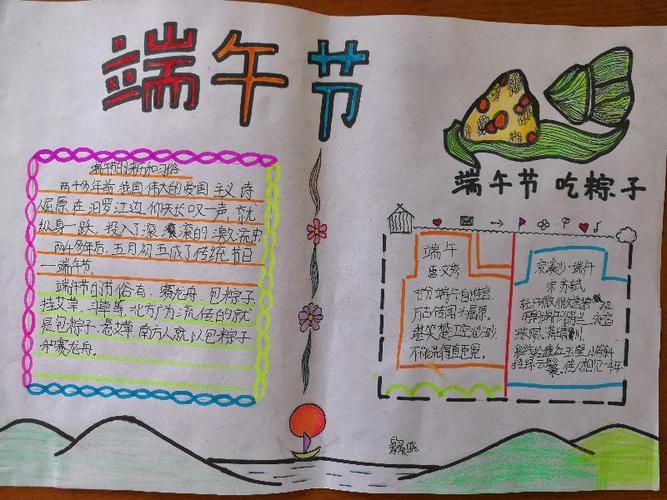 端午节
端午节 吃粽子
端午节的来历和习俗
两千多年前 我国 伟大的爱国 主义 诗
屈原在汨罗江边 仰天长叹一声 就
纵身一跃，投入了滚滚的激流中
两千多年后，五月初五成了传统节日
——端午节
端午节的节俗有：赛龙舟、包粽子
挂艾草、北方广为流传的就
是包粽子、南方人就以包粽子
和赛龙舟。
端午
唐 文秀
节分端午自谁言，
万古传闻为屈原。
堪笑楚江空
不能洗得直臣冤。
浣溪沙·端午
宋 苏轼
轻汗微微透碧纨
明朝端午浴芳兰
流香涨腻满晴川。
彩线轻缠红玉臂 小符斜
挂绿云鬟。佳人相见一千年